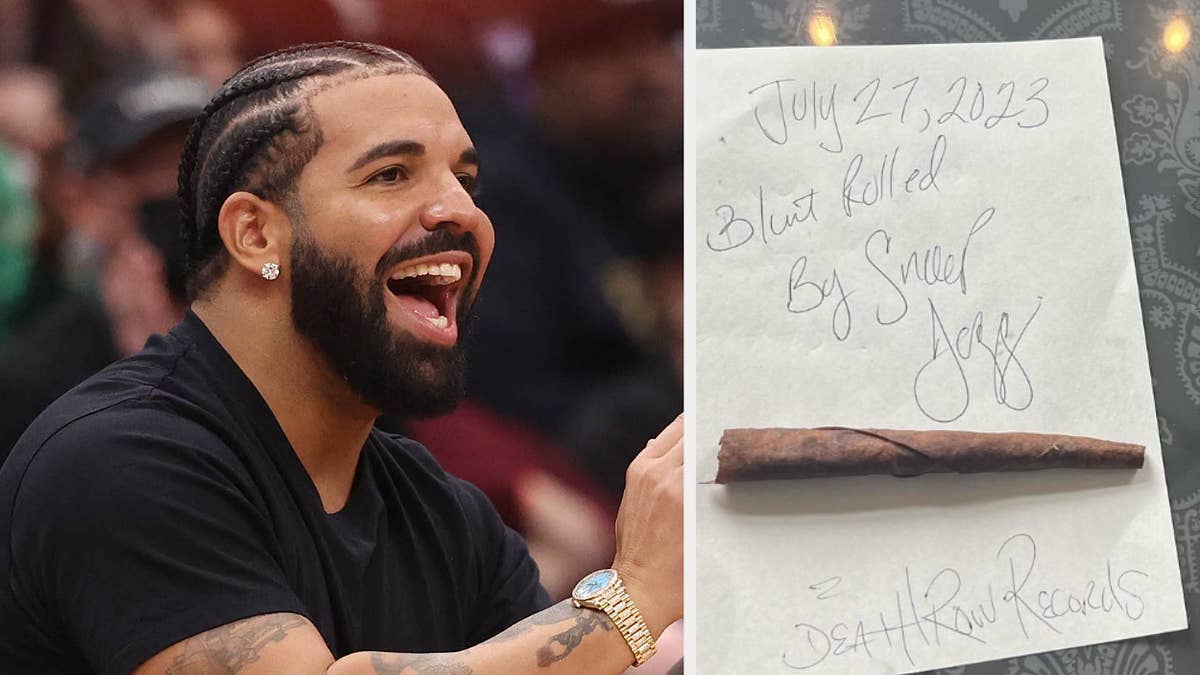 July 27, 2023
Blunt Rolled
By Snoop
Dogg
DEATH ROW RECORDS